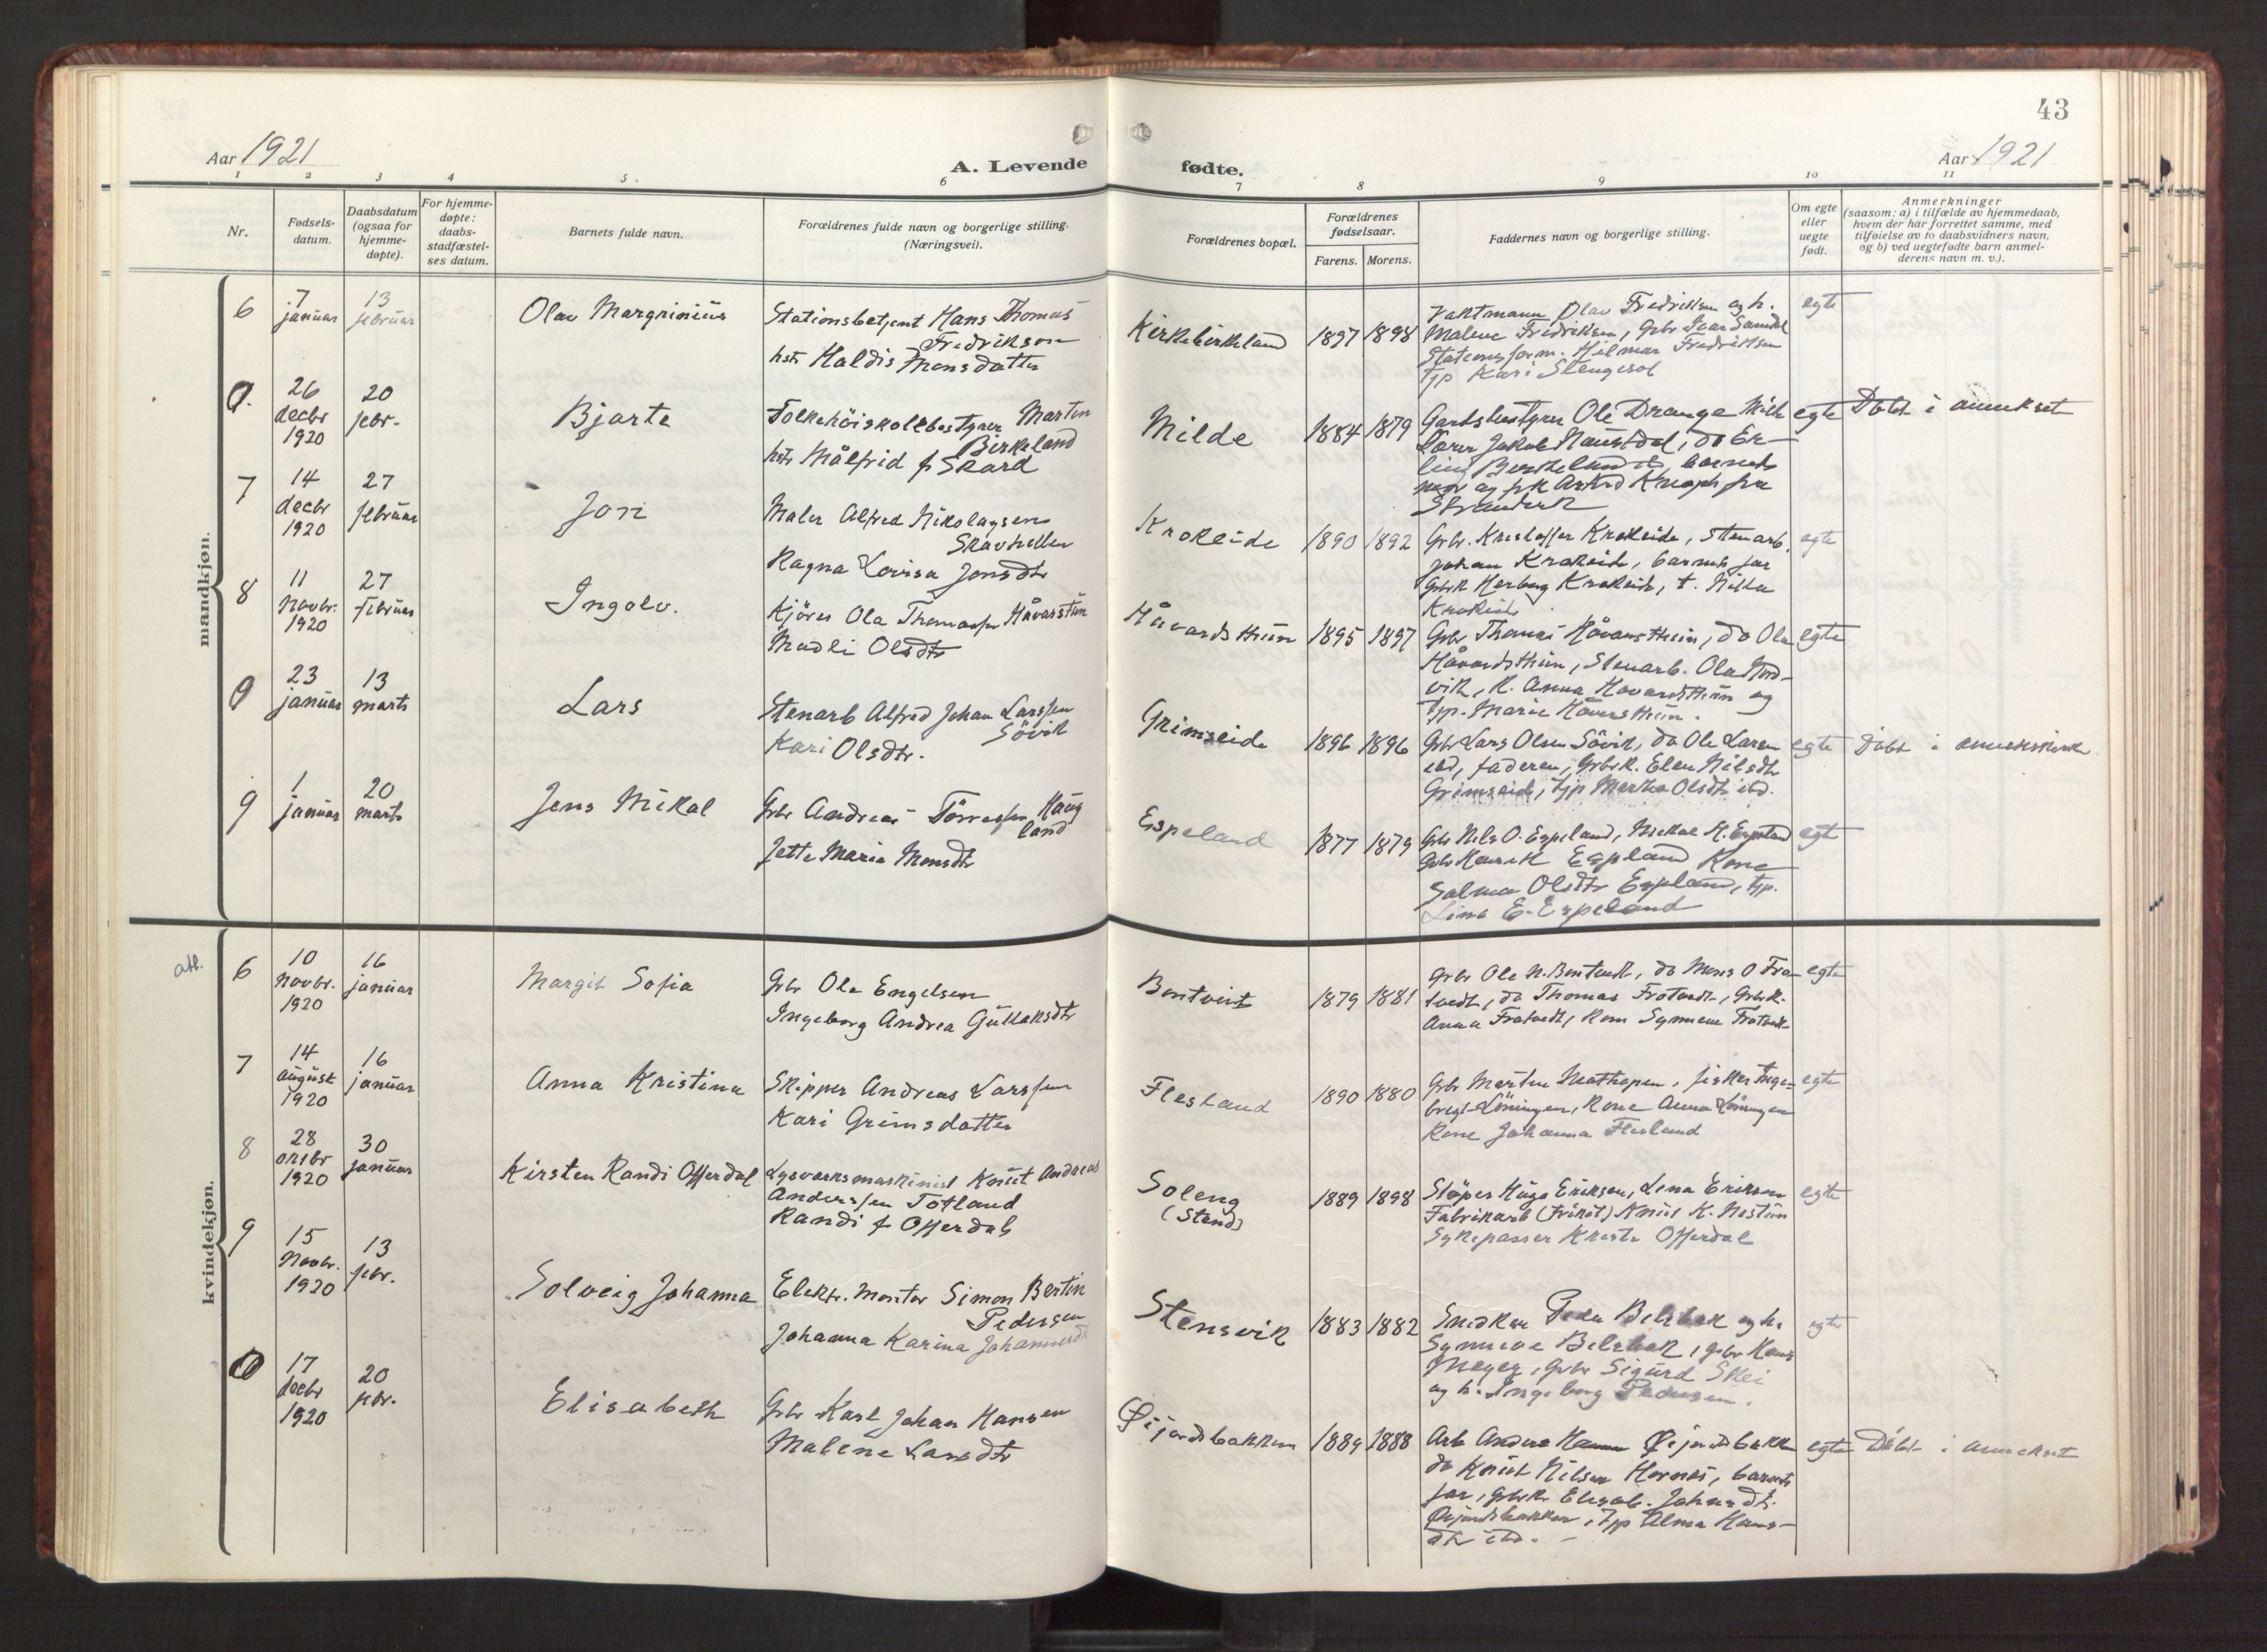 43
Aar 1921
A. Levende
fødte.
Aar 1921
1 2 3 4 5 6 7 8 9 10 11
Nr.
Fødsels-
datum.
Daabsdatum
(ogsaa for
hjemme-
døpte).
For hjemme-
døpte:
daabs-
stadfæstel-
ses datum.
Barnets fulde navn.
Forældrenes fulde navn og borgerlige stilling.
(Næringsvei).
Forældrenes bopæl.
Forældrenes
fødselsaar.
Farens. Morens.
Faddernes navn og borgerlige stilling.
Om egte
eller
uegte
født.
Anmerkninger
(saasom: a) i tilfælde av hjemmedaab,
hvem der har forrettet samme, med
tilføielse av to daabsvidners navn,
og b) ved uegtefødte barn anmel-
derens navn m. v.).
mandkjøn.
6
7 januar
13 februar
Olav Margninius
Stationsbetjent Hans Thomas
Fredrikson
hstr Haldis Monsdatter
Kirkebirkeland
1897 1898
Vaktmann Olav Fredriksen og h.
Malene Fredriksen, Grbr Ivar Samdal
Stationsform. Hilmar Fredriksen
Tjp Kari Stengesol
egte
0.
26 decbr 1920
20 febr.
Bjarte
Folkehöiskolebestyrer Martin
Birkeland
hstr Målfrid f Skard
Milde
1884 1879
Gardsbestyrer Ole Drange Milde
Lærer Jakob Naustdal, do Er-
ling Birkeland, barnets
mor og frk Astrid Knoph fra
Strandvik
egte
Døbt i annekset
7
14 decbr 1920
27 februar
Jon
Maler Alfred Nikolaysen
Skavhellen
Ragna Lovisa Jonsdtr
Krokeide
1890 1892
Grbr. Kristoffer Krokeide, stenarb.
Johan Krokeide, barnets far
Grbrk Herborg Krokeide, t. Nikka
Krokeide
egte
8
11 Novbr. 1920
27 februar
Ingolv.
Kjörer Ola Thomassen Håvarstun
Madli Olsdtr
Håvardsthun
1895 1897
Grbr Thomas Håvarsthun, do Ola
Håvardsthun, Stenarb. Ola Nord-
vik, K. Anna Havardsthun og
Tjp. Marie Håvarsthun.
egte
0
23 januar
13 marts
Lars
Stenarb Alfred Johan Larssen
Sövik
Kari Olsdtr.
Grimseide
1896 1896
Gbr Lars Olsen Sövik, do Ole Larsen
ibd, faderen, Gbrk. Elen Nilsdtr
Grimseid, tjp Marta Olsdtr ibd.
egte
Døbt i annekskirke
9
1 januar
20 marts
Jens Mikal
Gbr Andreas Törressen Haug
land
Jette Marie Monsdtr
Espeland
1877 1879
Gbr Nils O. Espeland, Mikal M. Espeland
Gbr Henrik Espeland Kone
Salma Olsdtr Espeland, tjp.
Lina E. Espeland
egte
kvindekjøn.
att.
6
10 Novbr. 1920
16 januar
Margit Sofia
Gbr Ole Engelsen
Ingeborg Andrea Gullaksdtr
Bontveit
1879 1881
Gbr Ole N. Bontveit, do Mons O Fra-
tvedt, do Thomas Frotvedt, Gbrk.
Anna Frotvedt, Kone Synneve Frotvedt
egte
7
14 august 1920
16 januar
Anna Kristina
Skipper Andreas Larssen
Kari Grimsdatter
Flesland
1890 1880
Gbr Martin Mathopen, fisker Inge-
brigt Löningen, Kone Anna Löningen
Kone Johanna Flesland
egte
8
28 oktbr 1920
30 januar
Kirsten Randi Offerdal
Lysverksmaskinist Knut Andreas
Anderssen Totland
Randi f Offerdal
Soleng
(Stend)
1889 1898
Stöper Hugo Eriksen, Lena Eriksen
Fabrikarb (Trikot) Knut K. Nestun
Sykepasser Kristi Offerdal
egte
9
15 Novbr. 1920
13 febr.
Solveig Johanna
Elektr. Montör Simon Bertin
Pedersen
Johanna Karina Johannesdtr
Stensvik
1883 1882
Snedker Peder Belsbak og h.
Synneve Belsbak, gbr Hans
Meyer, Gbr Sigurd Skei
og h. Ingeborg Pedersen.
egte
0
17 decbr 1920
20 febr.
Elisabeth
Gbr Karl Johan Hansen
Malene Larsdtr
Øijordsbakken
1889 1888
Arb Anders Hansen Øijordsbakken
do Knut Nilsen Hornæs, barnets
far, gbrk. Elisab. Johansdtr.
Øijordsbakken, Tjp Alma Hans-
dtr ibd. -
egte
Døbt i annekset